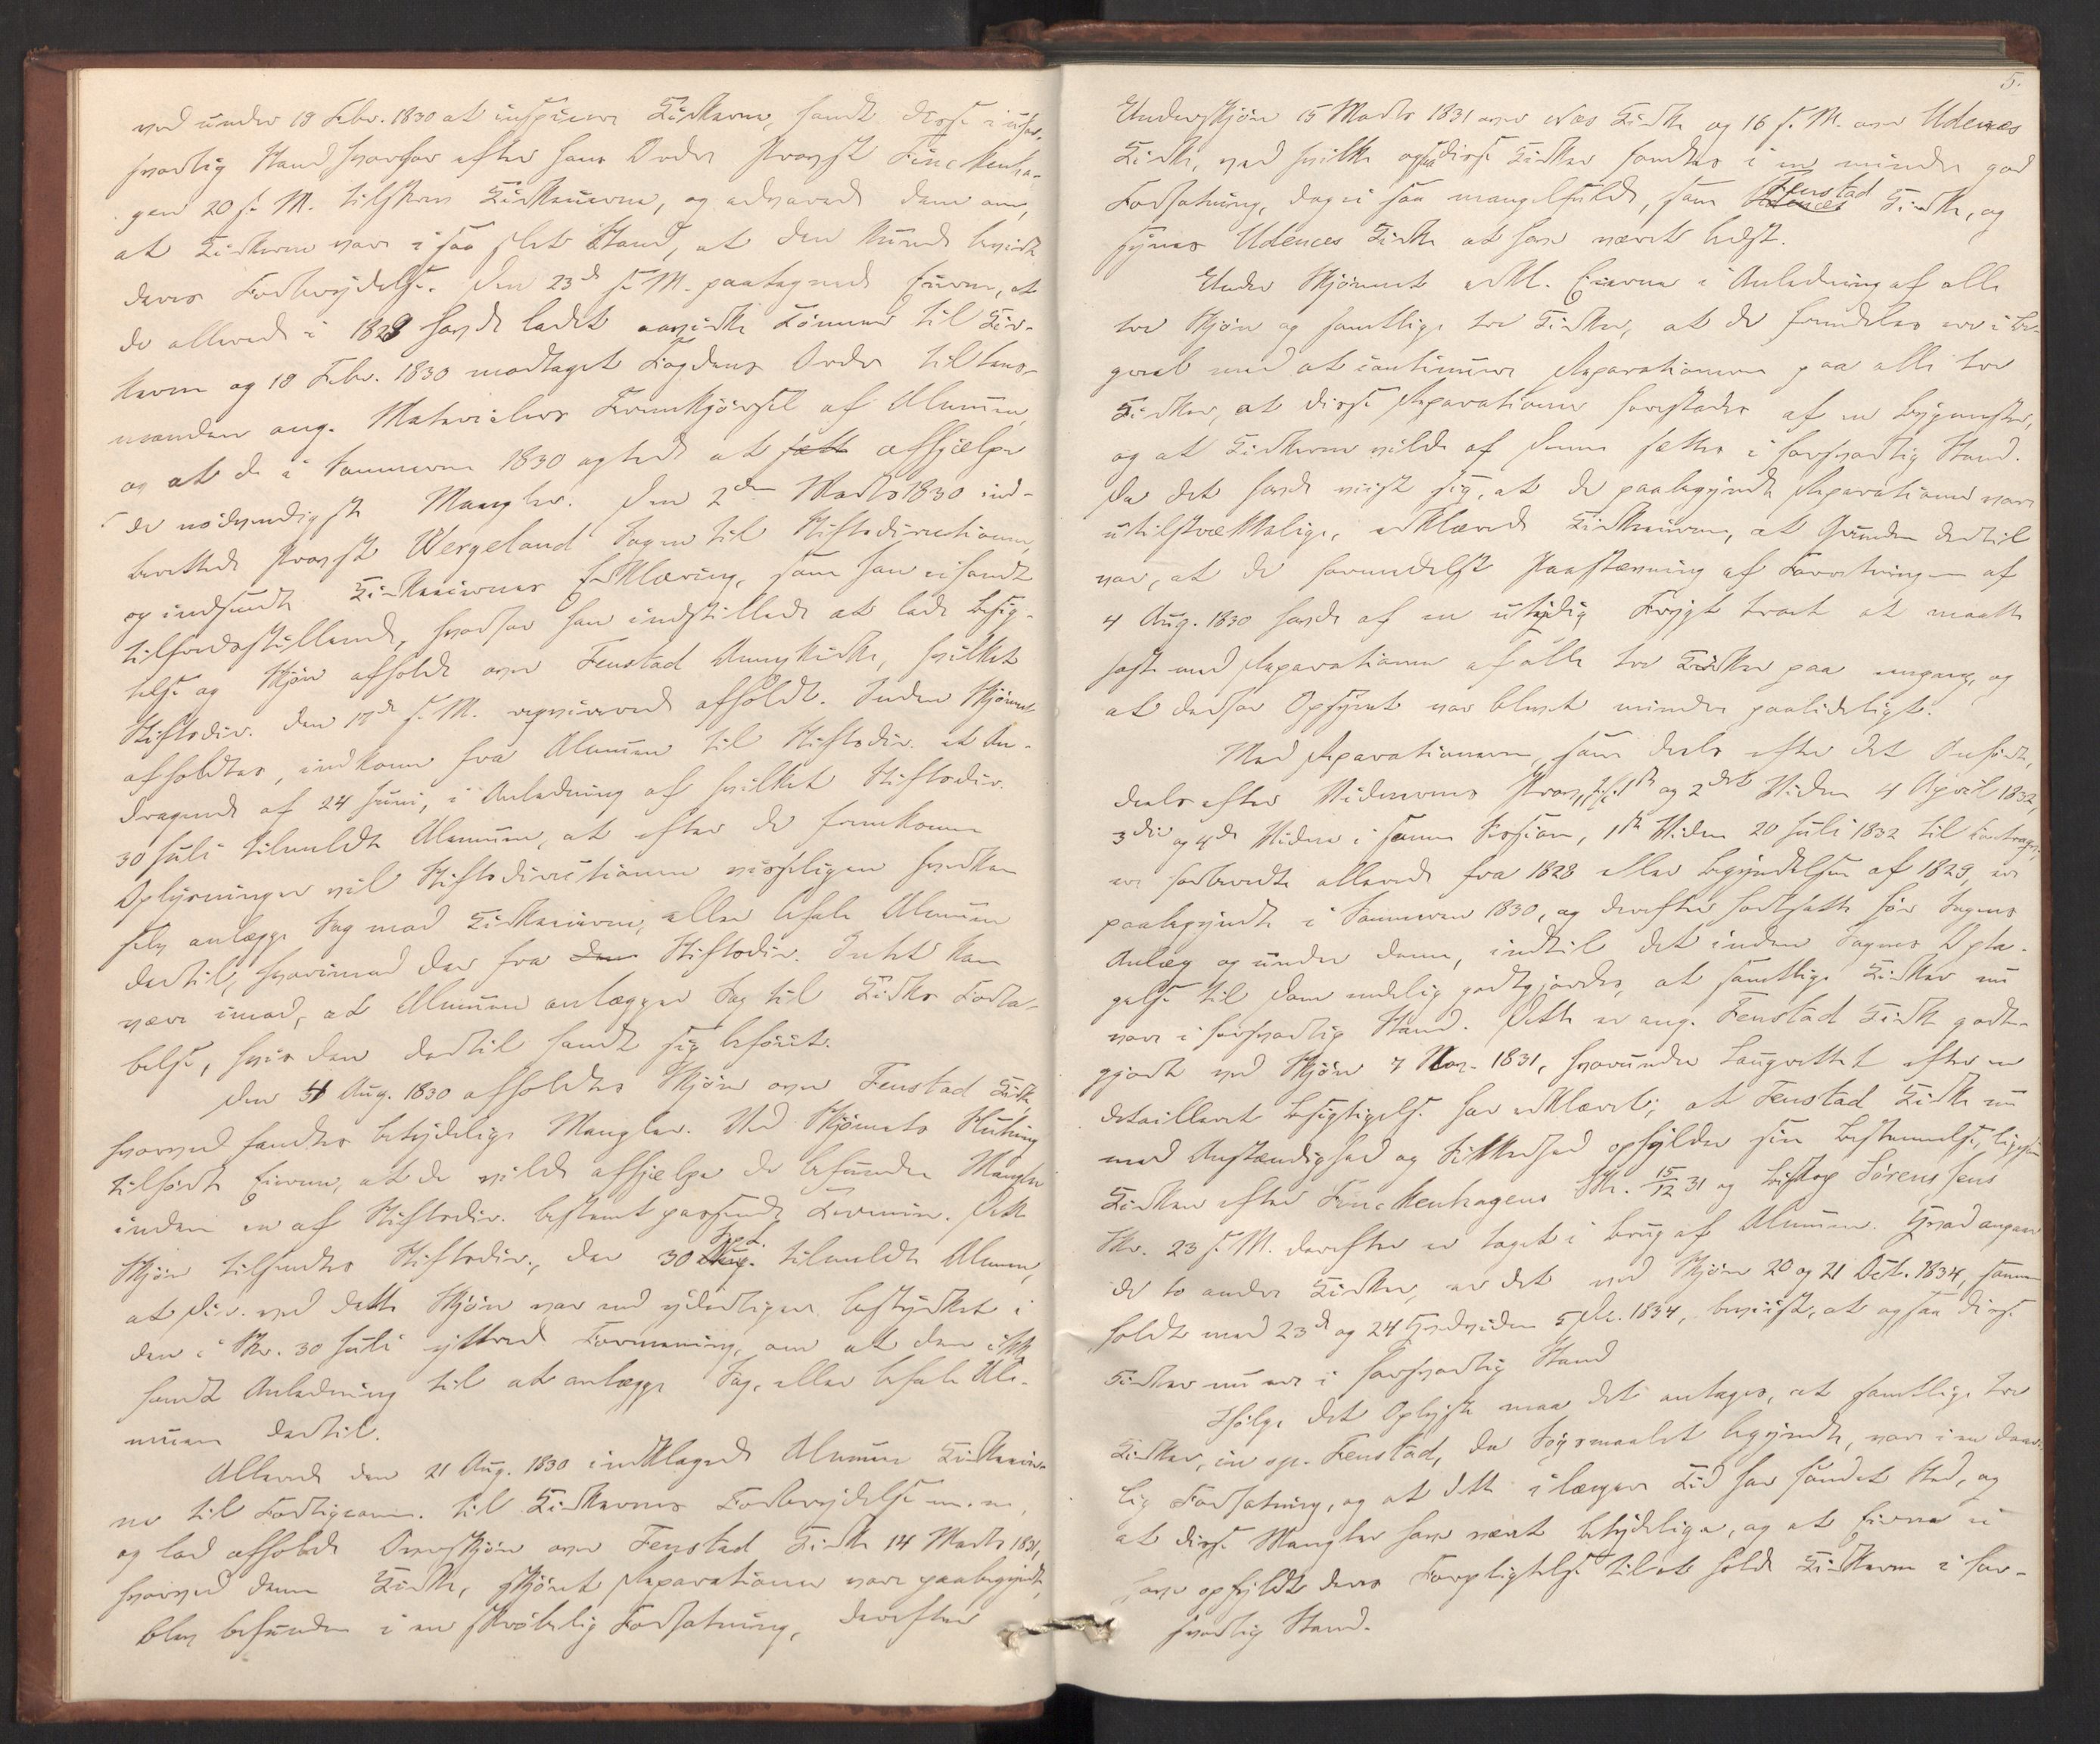 ved under 18 Febr. 1830 at inspicere Kirkerne, fandt disse i ufor-
svarlig Stand hvorfor efter hans Ordre Provst Finckenha-
gen 20 s. M. tilskrev Kirkeeierne, og advarede dem om,
at Kirkerne vare i saa slet Stand, at den kunde bevirke
deres Forbrydelse. Den 23de s. M. paatagned Eierne, at
de allerede i 1828 havde ladet anvirke Tömmer til Kir-
kerne og 18 Febr. 1830 modtaget Fogdens Ordre til Lens-
manden ang. Materialers Fremkjörsel af Almuen,
og at de i Sommeren 1830 agtede at afhjelpe
de nödvendigste Mangler. Den 2den Marts 1830 ind-
berettede Provst Wergeland Sagen til Stiftsdirectionen,
og indsendte Kirkeeiernes Erklæring, som han ei fandt
tilfredsstillende, hvorfor han indstillede at lade Besig-
telse og Skjön afholde over Fenstad Annexkirke, hvilket
Stiftsdir. den 17de s. M. reqvirerede afholdt. Inden Skjönnet
afholdtes, indkom fra Almuen til Stiftsdir. et An-
dragende af 24 Juni, i Anledning af hvilket Stiftsdir.
30 Juli tilmeldte Almuen, at efter de fremkomne
Oplysninger vil Stiftsdirectionen vistligen hverken
selv anlægge Sag mod Kirkeeierne, eller befale Almuen
dertil, hvorimod der fra Stiftsdir. Intet kan
være imod, at Almuen anlægger Sag til Kirkens Forta-
belse, hvis den dertil fandt sig beföiet.
Den 4 Aug. 1830 afholdtes Skjön over Fenstad Kirke,
hvorved fandtes betydelige Mangler. Ved Skjönnets Slutning
tilförte Eierne, at de vilde afhjelpe de befundne Mangler
inden en af Stiftsdir. bestemt passende Termin. Dette
Skjön tilsendtes Stiftsdir., der 30 Sept. tilmeldte Almuen,
at Dir. ved dette Skjön var end yderligere bestyrket i
den i Skr. 30 Juli yttrede Formening, om at den ikke
fandt Anledning til at anlægge Sag, eller befale Al-
muen dertil.
Allerede den 21 Aug. 1830 indklagede Almuen Kirkeeier-
ne til Forligscomm. til Kirkernes Forbrydelse m. m.
og lod afholde Overskjön over Fenstad Kirke 14 Marts 1831,
hvorved denne Kirke, skjönt Reparationer vare paabegyndte,
blev befunden i en skröbelig Forfatning, derefter
5.
Underskjön 15 Marts 1831 over Næs Kirke og 16 s. M. over Udenæs
Kirke, ved hvilke ogsaa disse Kirker fandtes i en mindre god
Forfatning, dog ei saa mangelfulde, som Fenstad Kirke, og
synes Udenæs Kirke at have været bedst.
Under Skjönnet erkl. Eierne i Anledning af alle
tre Skjön og samtlige tre Kirker, at de fremdeles ere i Be-
greb med at continuere Reparationerne paa alle tre
Kirker, at disse Reparationer forestodes af en Bygmester,
og at Kirkerne vilde af denne sættes i forsvarlig Stand.
Da det havde viist sig, at de paabegyndte Reparationer vare
utilstrækkelige, erklærede Kirkeeierne, at Grunden dertil
var, at de formedelst Paastævning af Forretningen af
4 Aug. 1830 havde af en utidig Frygt troet at maatte
haste med Reparationen af alle tre Kirker paa engang, og
at derfor Opsynet var blevet mindre paalideligt.
Med Reparationerne, som deels efter det Anförte,
deels efter Vidnernes Prov, 1ste og 2det Vidne 4 April 1832,
3die og 4de Vidne i samme Session, 1ste Vidne 20 Juli 1832 til
ere forberedte allerede fra 1828 eller Begyndelsen af 1829, ere
paabegyndte i Sommeren 1830, og derefter fortsatte för Sagens
Anlæg og under denne, indtil det inden Sagens Opta-
gelse til Dom endelig godtgjordes, at samtlige Kirker nu
vare i forsvarlig Stand. Dette er ang. Fenstad Kirke godt-
gjort ved Skjön 7 Nov. 1831, hvorunder Laugrettet efter en
detailleret Besigtigelse har erklæret, at Fenstad Kirke nu
med Anstændighed og Sikkerhed opfylder sin Bestemmelse, ligesom
Kirken efter Finckenhagens Skr. 15/12 31 og Biskop Sörenssens
Skr. 23 s. M. derefter er taget i Brug af Almuen. Hvad angaaer
de to andre Kirker, er det ved Skjön 20 og 21 Oct. 1834, sammen-
holdt med 23de og 24 Hovedvidne 5 Dec. 1834, beviist, at ogsaa disse
Kirker nu ere i forsvarlig Stand
Ifölge det Oplyste maa det antages, at samtlige tre
Kirker, in sp. Fenstad, da Sögsmaalet begyndte, vare i en daar-
lig Forfatning, og at dette i længere Tid har fundet Sted, og
at disse Mangler have været betydelige, og at Eierne ei
have opfyldt deres Forpligtelse til at holde Kirkerne i for-
svarlig Stand.